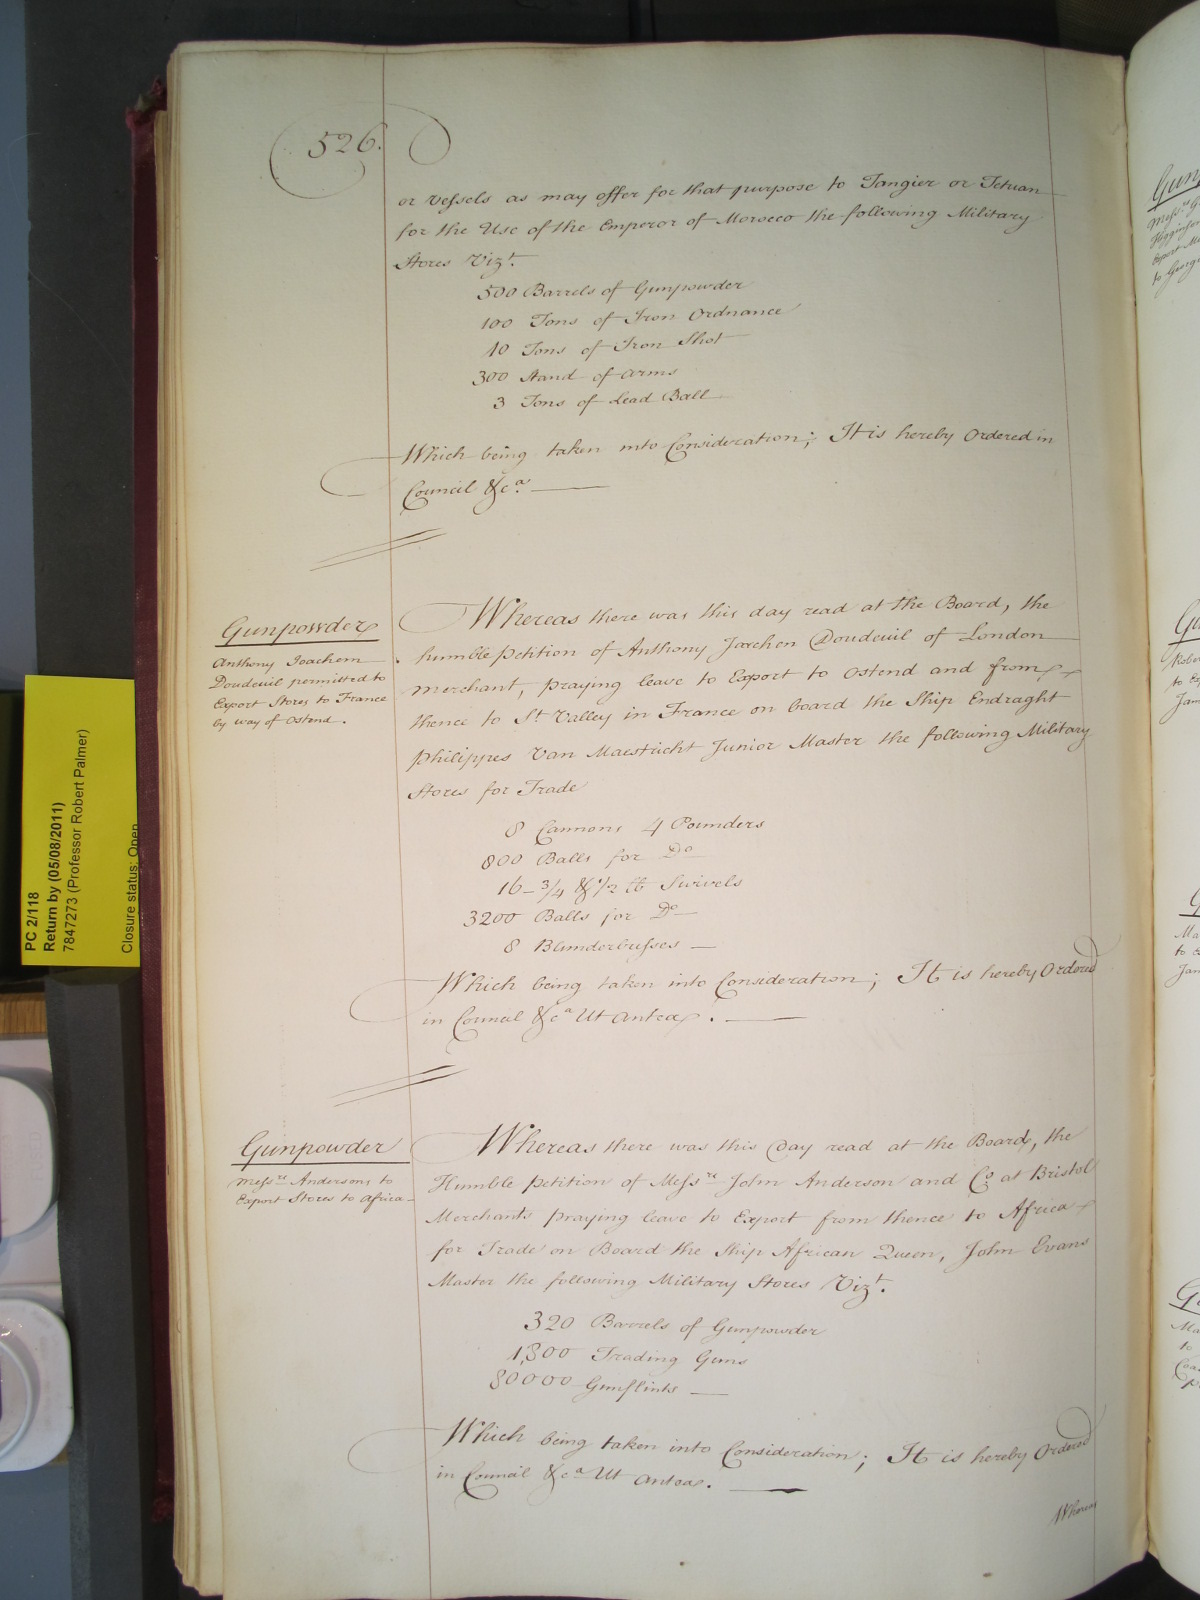 526.
or Vessels as may offer for that purpose to Tangier or Tetuan
for the Use of the Emperor of Morocco the following Military
Stores Vizt.
500 Barrels of Gunpowder
100 Tons of Iron Ordnance
10 Tons of Iron Shot
300 Stand of Arms
3 Tons of Lead Ball
Which being taken into Consideration; It is hereby Ordered in
Council &ca.
Gunpowder
Anthony Joachem
Doudeuil permitted to
Export Stores to France
by way of Ostend.
Whereas there was this day read at the Board, the
humble Petition of Anthony Jaochen Doudeuil of London
Merchant, praying leave to Export to Ostend and from
thence to St. Valley in France on board the Ship Endraght
Philippes Van Maestricht Junior Master the following Military
Stores for Trade
8 Cannons 4 Pounders
800 Balls for Do
16 - 3/4 & 1/2 lb Swivels
3200 Balls for Do
8 Blunderbusses
Which being taken into Consideration; It is hereby Ordered
in Council &ca Ut Antea.
Gunpowder
Messrs. Andersons to
Export Stores to Africa
Whereas there was this Day read at the Board, the
Humble Petition of Messrs. John Anderson and Co at Bristol
Merchants praying leave to Export from thence to Africa
for Trade on Board the Ship African Queen, John Evans
Master the following Military Stores Vizt.
320 Barrels of Gunpowder
1,300 Trading Guns
80000 Gunflints
Which being taken into Consideration; It is hereby Ordered
in Council &ca Ut Antea.
Whereas
PC 2/118
Return by (05/08/2011)
7847273 (Professor Robert Palmer)
Closure status: Open